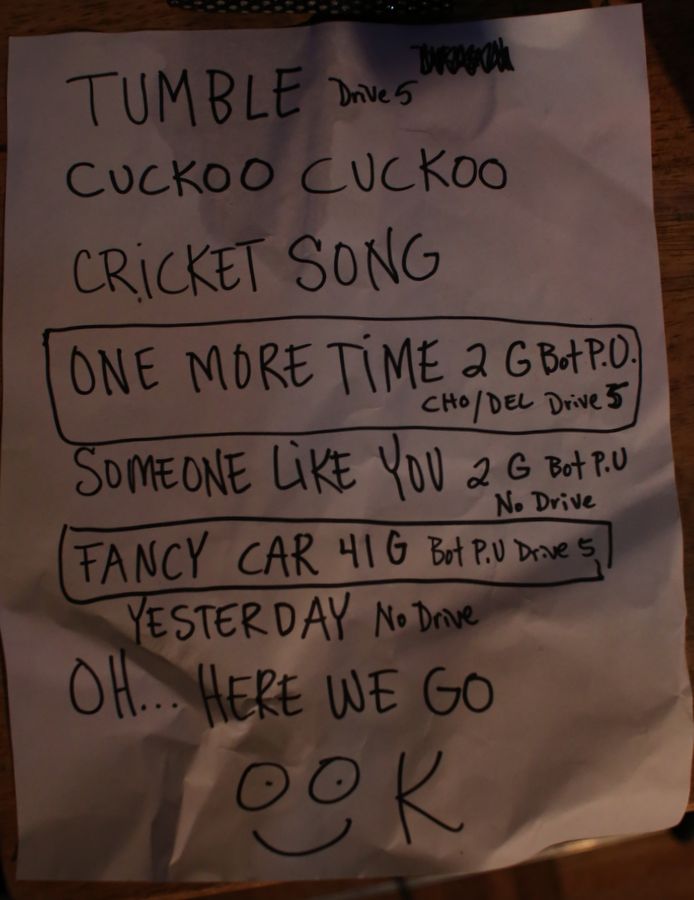 TUMBLE Drive 5
CUCKOO CUCKOO
CRiCKET SONG
ONE MORE TiME 2 G Bot P.U.
CHO/DEL Drive 5
SOMEONE LiKE YOU 2 G Bot P.U
No Drive
FANCY CAR 41 G Bot P.U Drive 5
YESTERDAY No Drive
OH... HERE WE GO
OOK